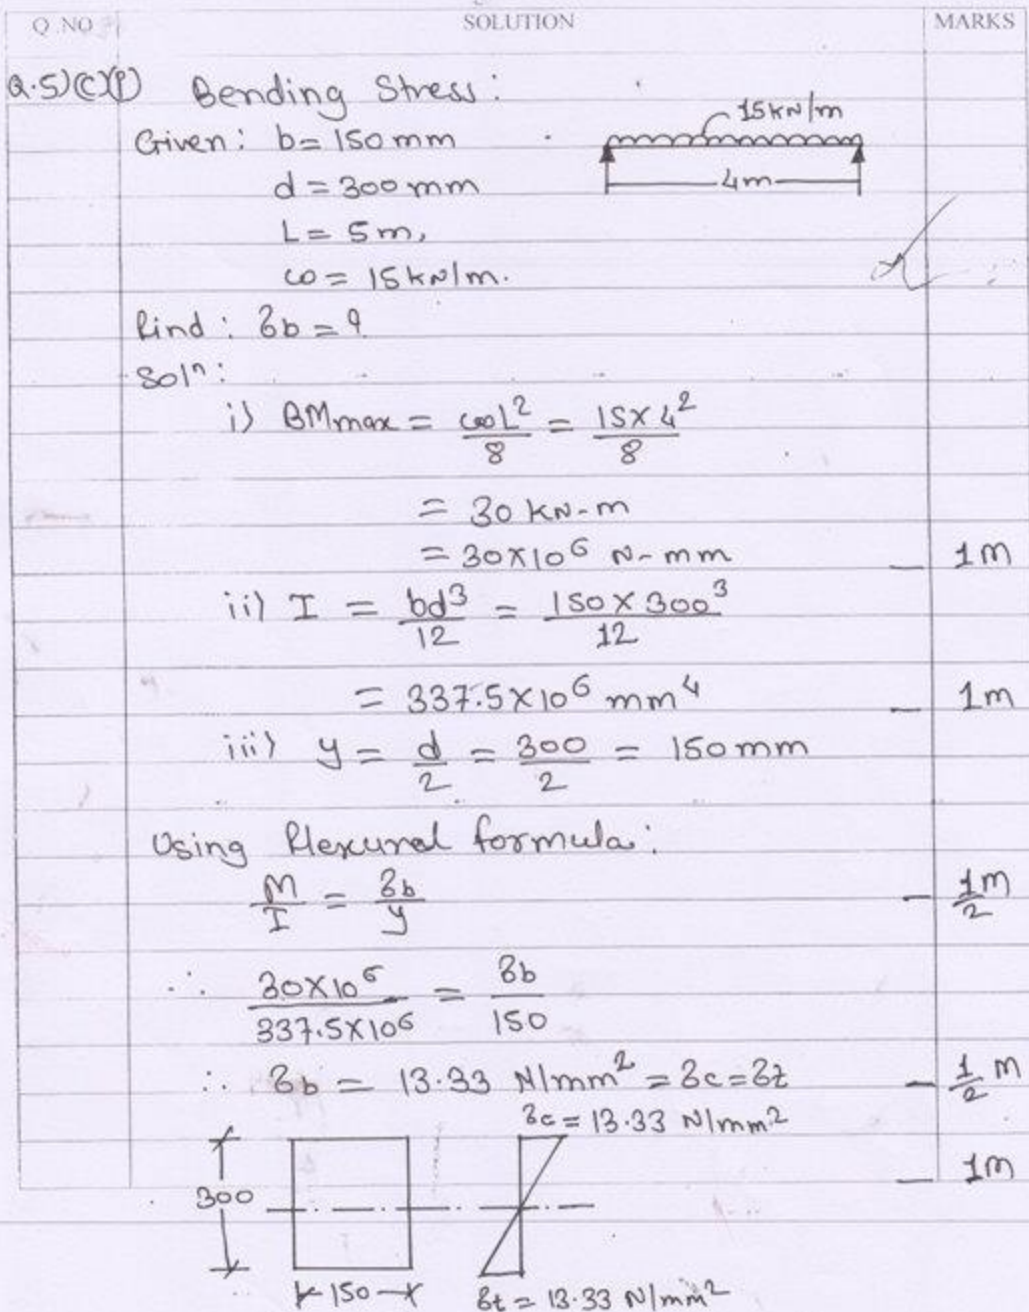 Q.NO SOLUTION MARKS
Q.5)(C)(i) Bending Stress:
15kN/m
Given: b = 150 mm
d = 300 mm
4m
L = 5m,
ω = 15 kN/m.
Find: σb = ?
Solⁿ:
i) BMmax = ωL²/8 = 15×4²/8
= 30 kN-m
= 30×10⁶ N-mm — 1M
ii) I = bd³/12 = 150×300³/12
= 337.5×10⁶ mm⁴ — 1M
iii) y = d/2 = 300/2 = 150 mm
Using Flexural formula:
M/I = σb/y — 1/2 M
∴ 30×10⁶/337.5×10⁶ = σb/150
∴ σb = 13.33 N/mm² = σc = σt — 1/2 M
σc = 13.33 N/mm²
— 1M
300
150
σt = 13.33 N/mm²